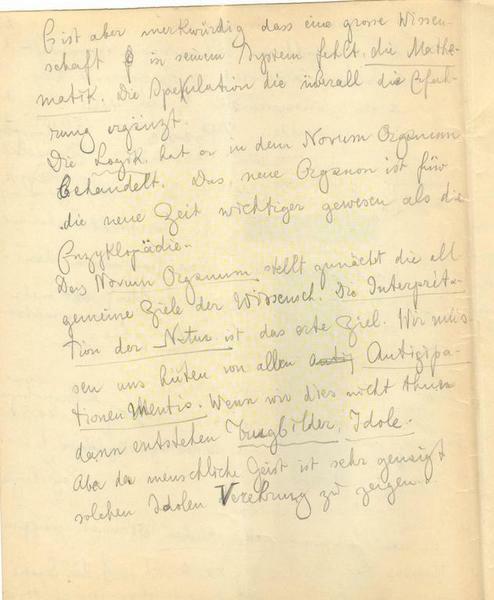 Es ist aber merkwürdig dass eine grosse Wissen-
schaft in seinem System fehlt, die Mathe-
matik. Die Spekulation die überall die Erfah-
rung ergänzt.
Die Logik hat er in dem Novum Organum
behandelt. Das neue Organon ist für
die neue Zeit wichtiger gewesen als die
Enzyklopädie.
Das Novum Organum stellt zunächt die all
gemeine Ziele der Wissensch. Die Interpreta-
tion der Natur ist das erte Ziel. Wir müs-
sen uns hüten von allen Antizipa-
tionen Mentis. Wenn wir dies nicht thun
dann entstehen Trugbilder, Idole.
Aber der menschliche Geist ist sehr geneigt
solchen Idolen Verehrung zu zeigen.